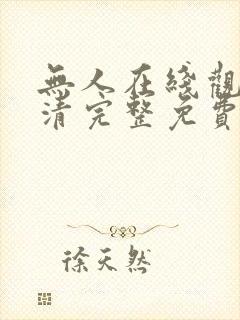 無人在綫觀
清完整免費
徐天然